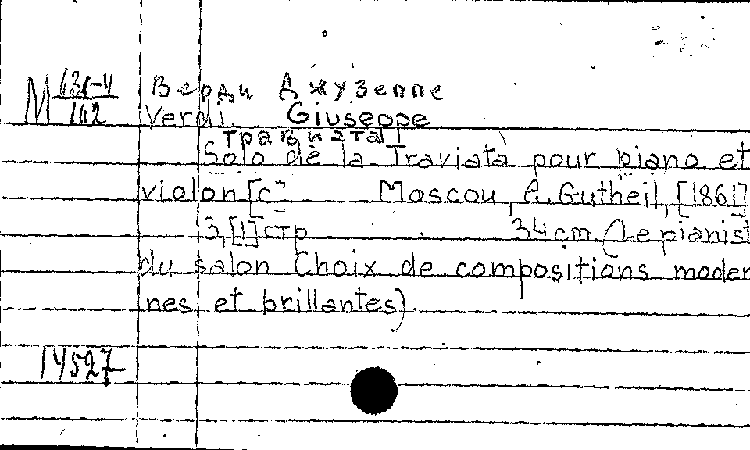 Верди Джузеппе
М 631-4/102
Verdi. Giuseppe
Травиата
Solo de la Traviata pour piano et
violon [с Moscou, A. Gutheil, [1861]
3, [1] стр 34 cm. (Le pianist
du salon Choix de compositians moder
nes et brillantes)
14527